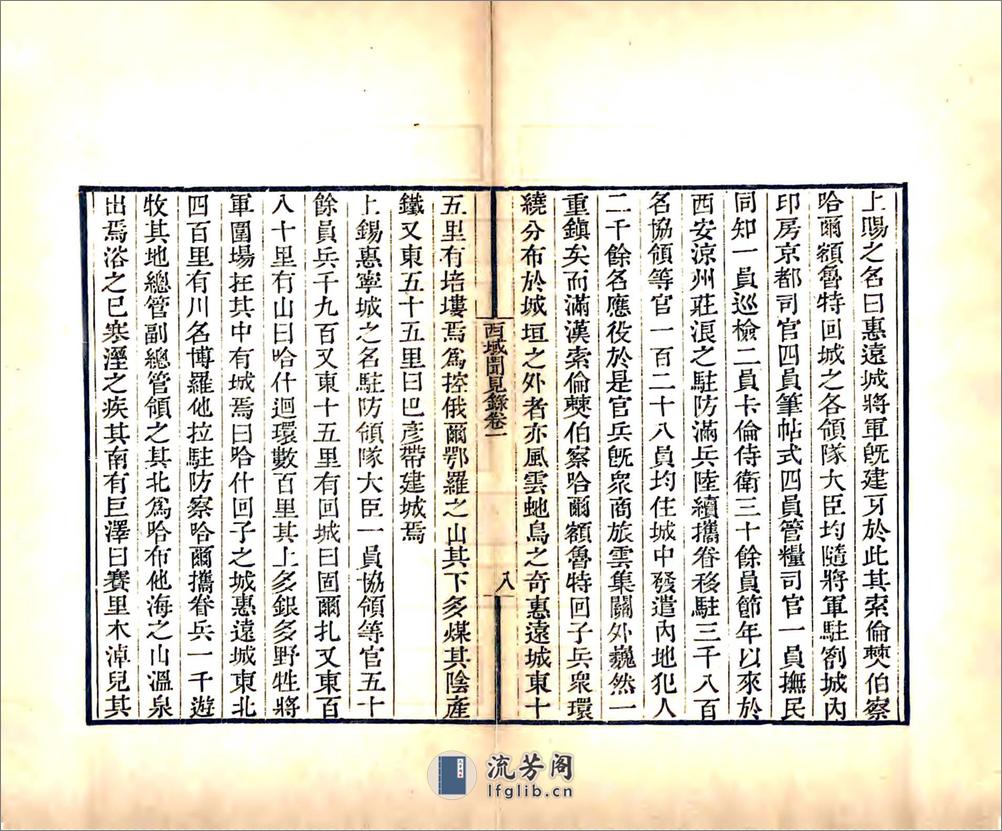 上賜之名曰惠遠城將軍既建牙於此其索倫僰伯察
哈爾額魯特回城之各領隊大臣均隨將軍駐劄城內
印房京都司官四員筆帖式四員管糧司官一員撫民
同知一員巡檢二員卡倫侍衛三十餘員節年以來於
西安涼州莊浪之駐防滿兵陸續攜眷移駐三千八百
名協領等官一百二十八員均住城中發遣內地犯人
二千餘名應役於是官兵旣眾商旅雲集關外巍然一
重鎮矣而滿漢索倫僰伯察哈爾額魯特回子兵眾環
繞分布於城垣之外者亦風雲虵鳥之奇惠遠城東十
西域聞見錄卷一
八
五里有培塿焉為控俄爾鄂羅之山其下多煤其陰產
鐵又東五十五里曰巴彥帶建城焉
上錫惠寧城之名駐防領隊大臣一員協領等官五十
餘員兵千九百又東十五里有回城曰固爾扎又東百
八十里有山曰哈什迴環數百里其上多銀多野牲將
軍圍場在其中有城焉曰哈什回子之城惠遠城東北
四百里有川名博羅他拉駐防察哈爾攜眷兵一千遊
牧其地總管副總管領之其北為哈布他海之山溫泉
出焉浴之已寒溼之疾其南有巨澤曰賽里木淖兒其
流芳阁
lfglib.cn